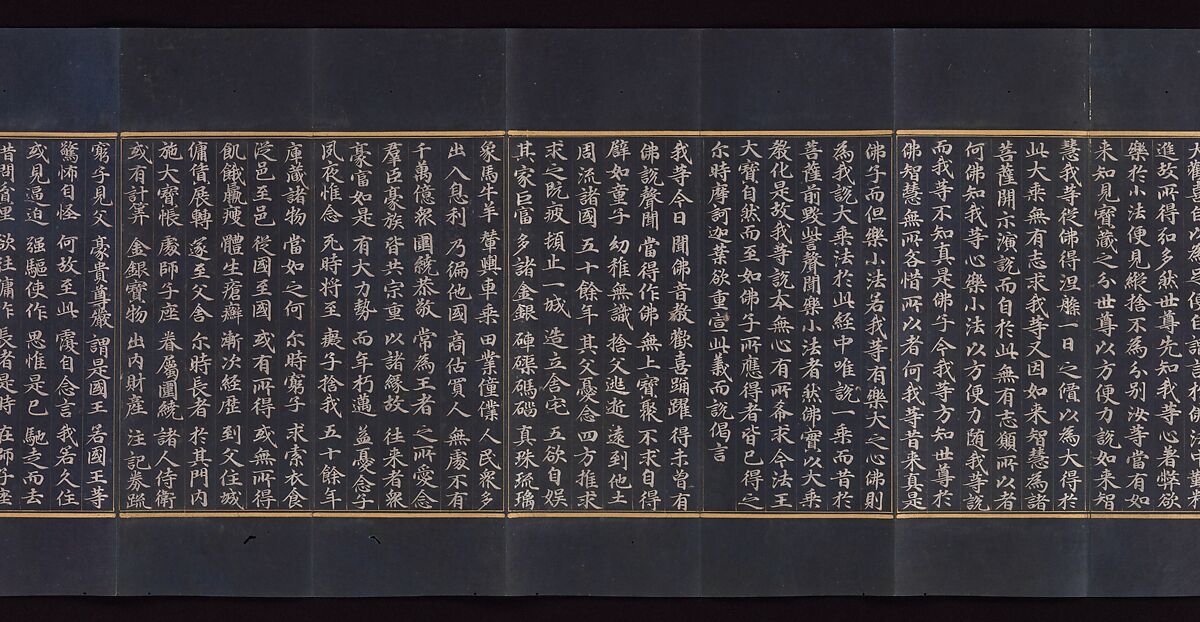 進故所得弘多然世尊先知我等心著弊欲
樂於小法便見縱捨不為分別汝等當有如
來知見寶藏之分世尊以方便力說如來智
慧我等從佛得涅槃一日之價以為大得於
此大乘無有志求我等又因如來智慧為諸
菩薩開示演說而自於此無有志願所以者
何佛知我等心樂小法以方便力隨我等說
而我等不知真是佛子今我等方知世尊於
佛智慧無所吝惜所以者何我等昔來真是
佛子而但樂小法若我等有樂大之心佛則
為我說大乘法於此經中唯說一乘而昔於
菩薩前毀呰聲聞樂小法者然佛實以大乘
教化是故我等說本無心有所希求今法王
大寶自然而至如佛子所應得者皆已得之
尒時摩訶迦葉欲重宣此義而說偈言
我等今日 聞佛音教 歡喜踊躍 得未曾有
佛說聲聞 當得作佛 無上寶聚 不求自得
譬如童子 幼稚無識 捨父逃逝 遠到他土
周流諸國 五十餘年 其父憂念 四方推求
求之既疲 頓止一城 造立舍宅 五欲自娛
其家巨富 多諸金銀 硨磲碼碯 真珠琉璃
象馬牛羊 輦輿車乘 田業僮僕 人民衆多
出入息利 乃遍他國 商估買人 無處不有
千萬億衆 圍繞恭敬 常為王者 之所愛念
羣臣豪族 皆共宗重 以諸緣故 往來者衆
豪富如是 有大力勢 而年朽邁 益憂念子
夙夜惟念 死時將至 癡子捨我 五十餘年
庫藏諸物 當如之何 尒時窮子 求索衣食
從邑至邑 從國至國 或有所得 或無所得
飢餓羸瘦 體生瘡癬 漸次經歷 到父住城
傭賃展轉 遂至父舍 尒時長者 於其門內
施大寶帳 處師子座 眷屬圍繞 諸人侍衛
或有計筭 金銀寶物 出內財產 注記券疏
窮子見父 豪貴尊嚴 謂是國王 若國王等
驚怖自怪 何故至此 覆自念言 我若久住
或見逼迫 强驅使作 思惟是已 馳走而去
借問貧里 欲往傭作 長者是時 在師子座